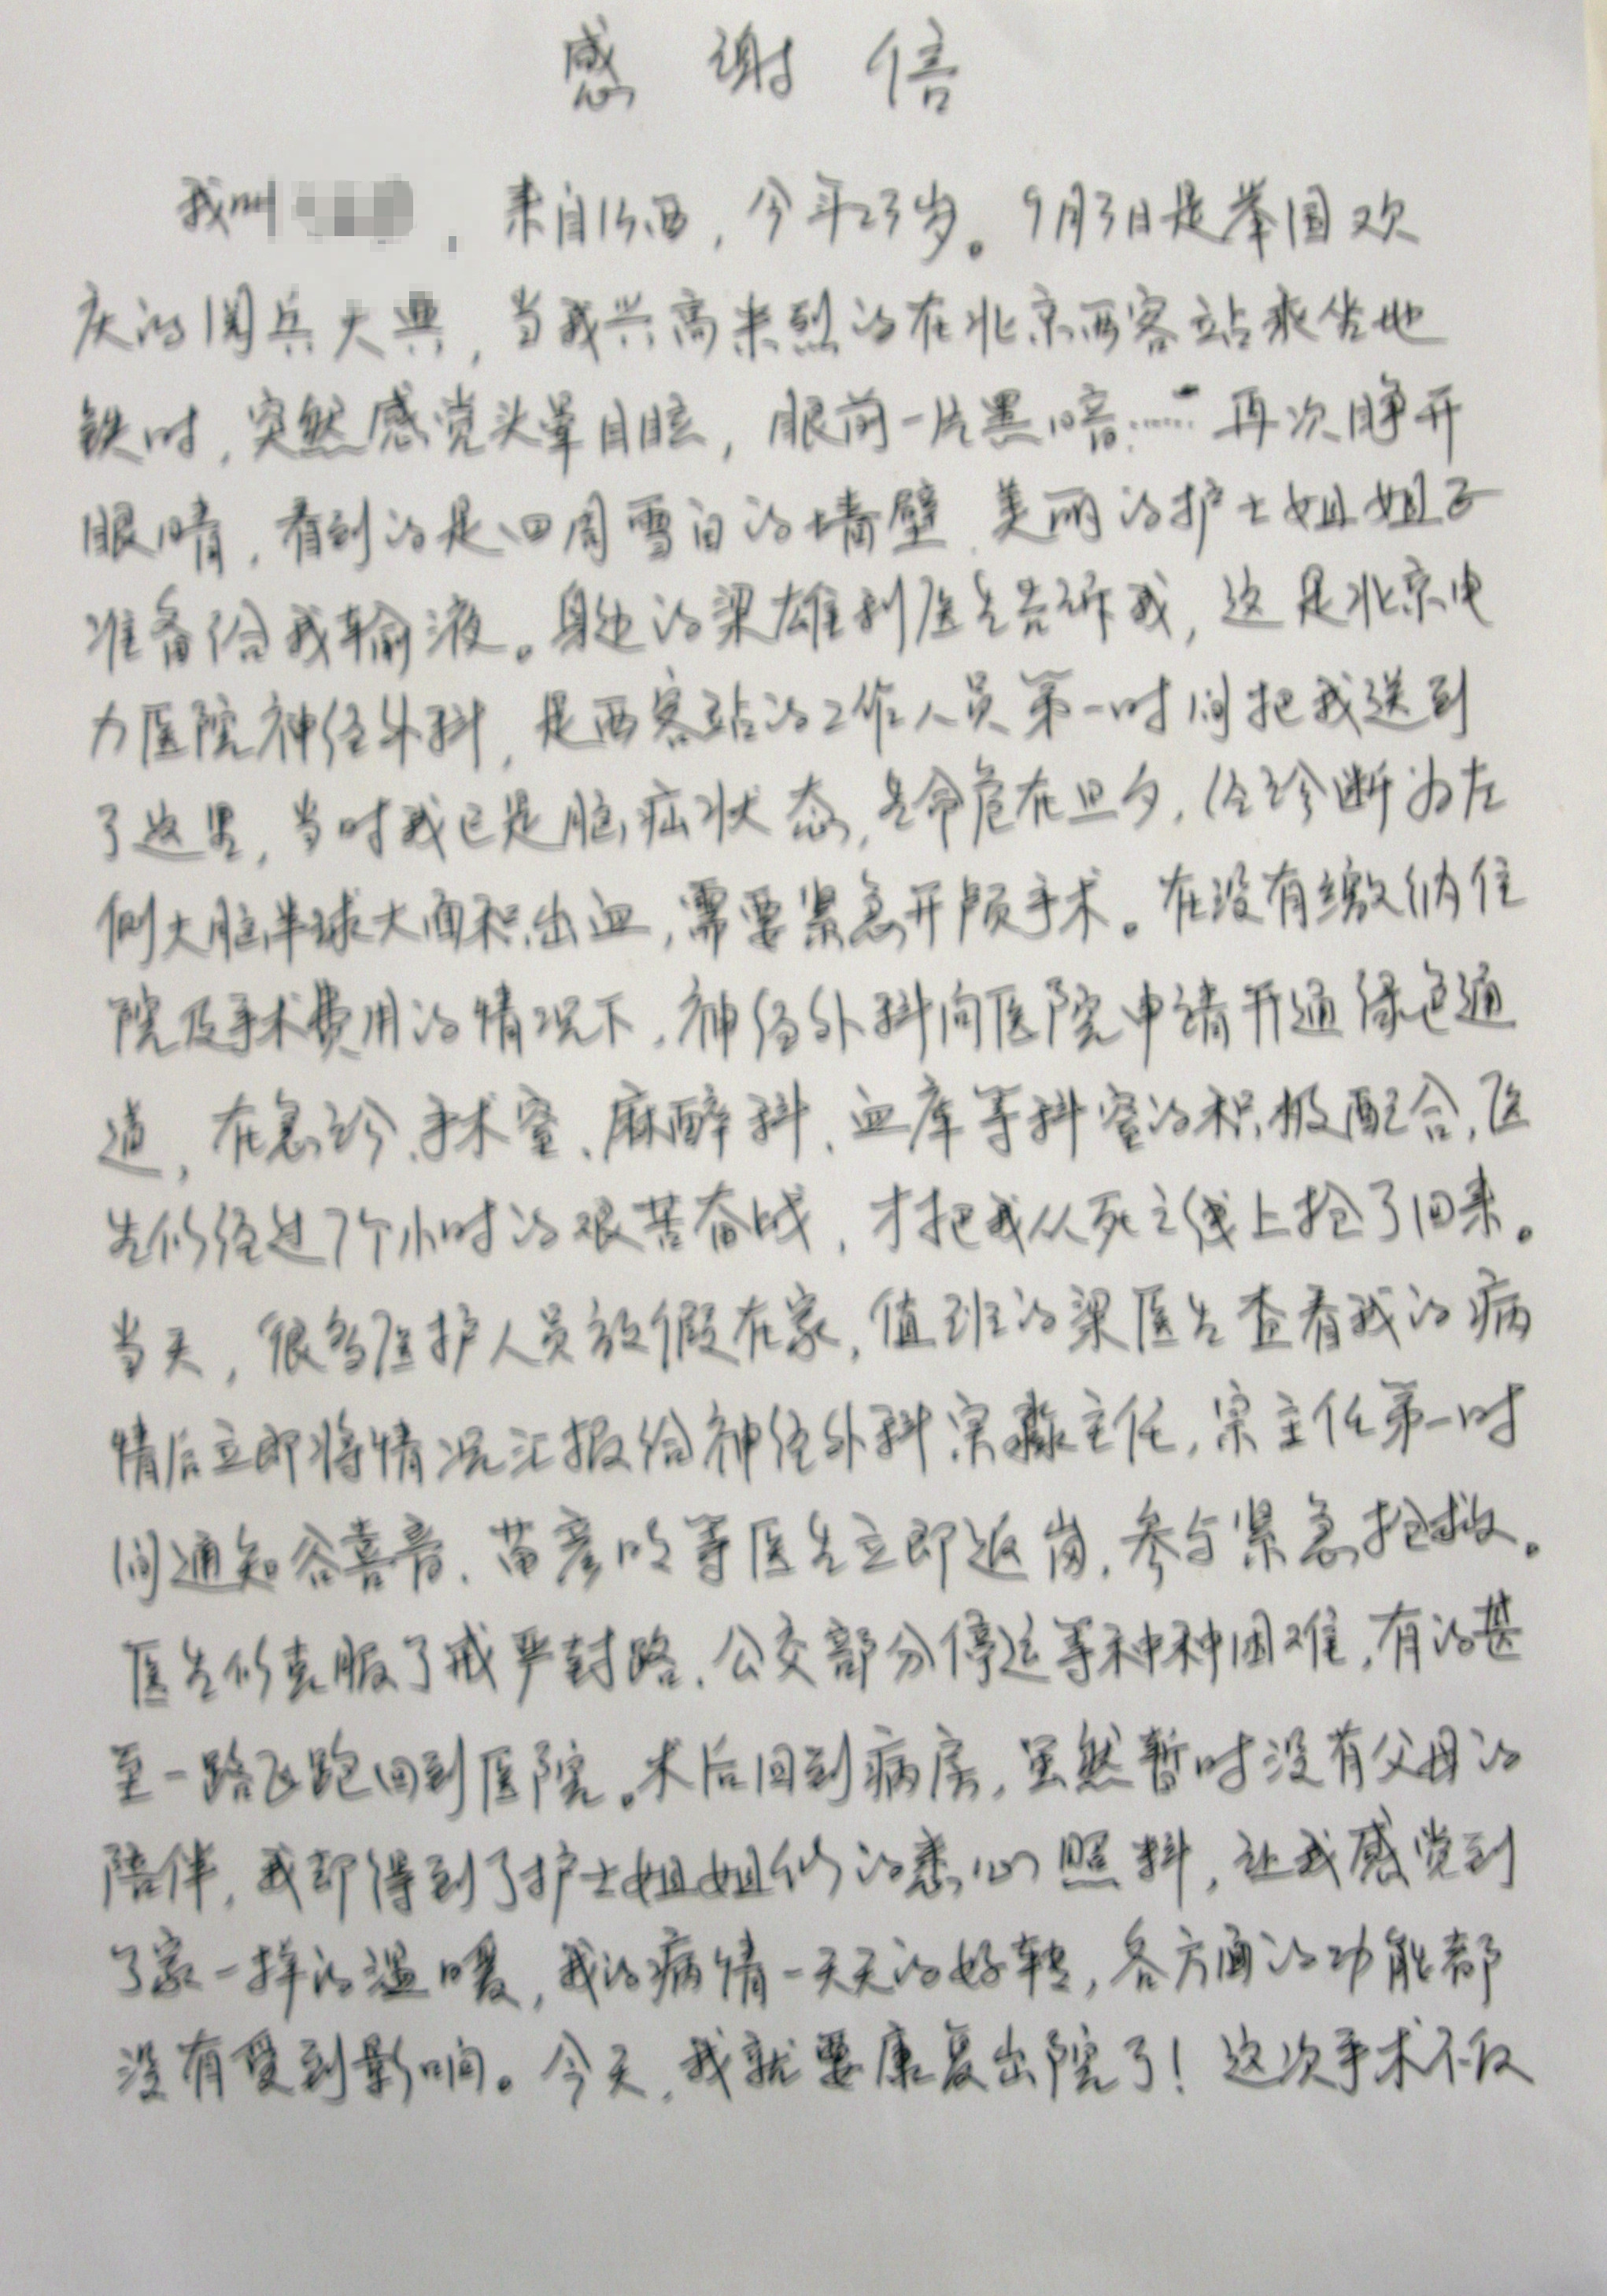 感谢信
我叫 ，来自山西，今年23岁。9月3日是举国欢
庆的阅兵大典，当我兴高采烈的在北京西客站乘坐地
铁时，突然感觉头晕目眩，眼前一片黑暗……再次睁开
眼睛，看到的是四周雪白的墙壁、美丽的护士姐姐正
准备给我输液。身边的梁雄利医生告诉我，这是北京电
力医院神经外科，是西客站的工作人员第一时间把我送到
了这里，当时我已是脑疝状态，生命危在旦夕，经诊断为左
侧大脑半球大面积出血，需要紧急开颅手术。在没有缴纳住
院及手术费用的情况下，神经外科向医院申请开通绿色通
道，在急诊、手术室、麻醉科、血库等科室的积极配合，医
生们经过7个小时的艰苦奋战，才把我从死亡线上抢了回来。
当天，很多医护人员放假在家，值班的梁医生查看我的病
情后立即将情况汇报给神经外科宗淼主任，宗主任第一时
间通知谷喜音、苗彦明等医生立即返岗，参与紧急抢救。
医生们克服了戒严封路、公交部分停运等种种困难，有的甚
至一路飞跑回到医院。术后回到病房，虽然暂时没有父母的
陪伴，我却得到了护士姐姐们的悉心照料，让我感觉到
了家一样的温暖，我的病情一天天的好转，各方面的功能都
没有受到影响。今天，我就要康复出院了！这次手术不仅